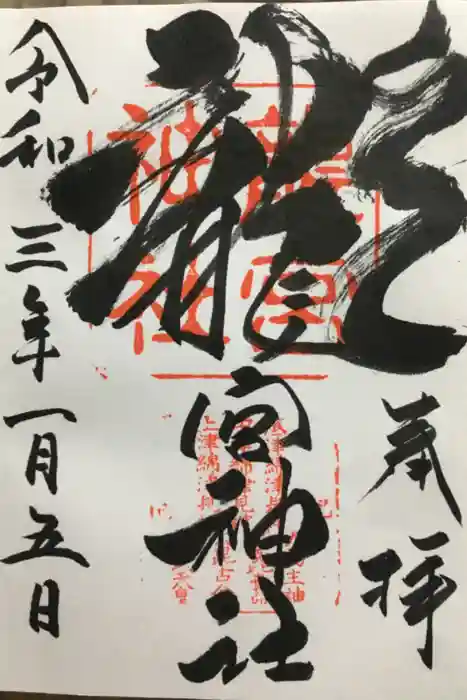 奉拝
龍宮神社
龍宮
神社
令和三年一月五日